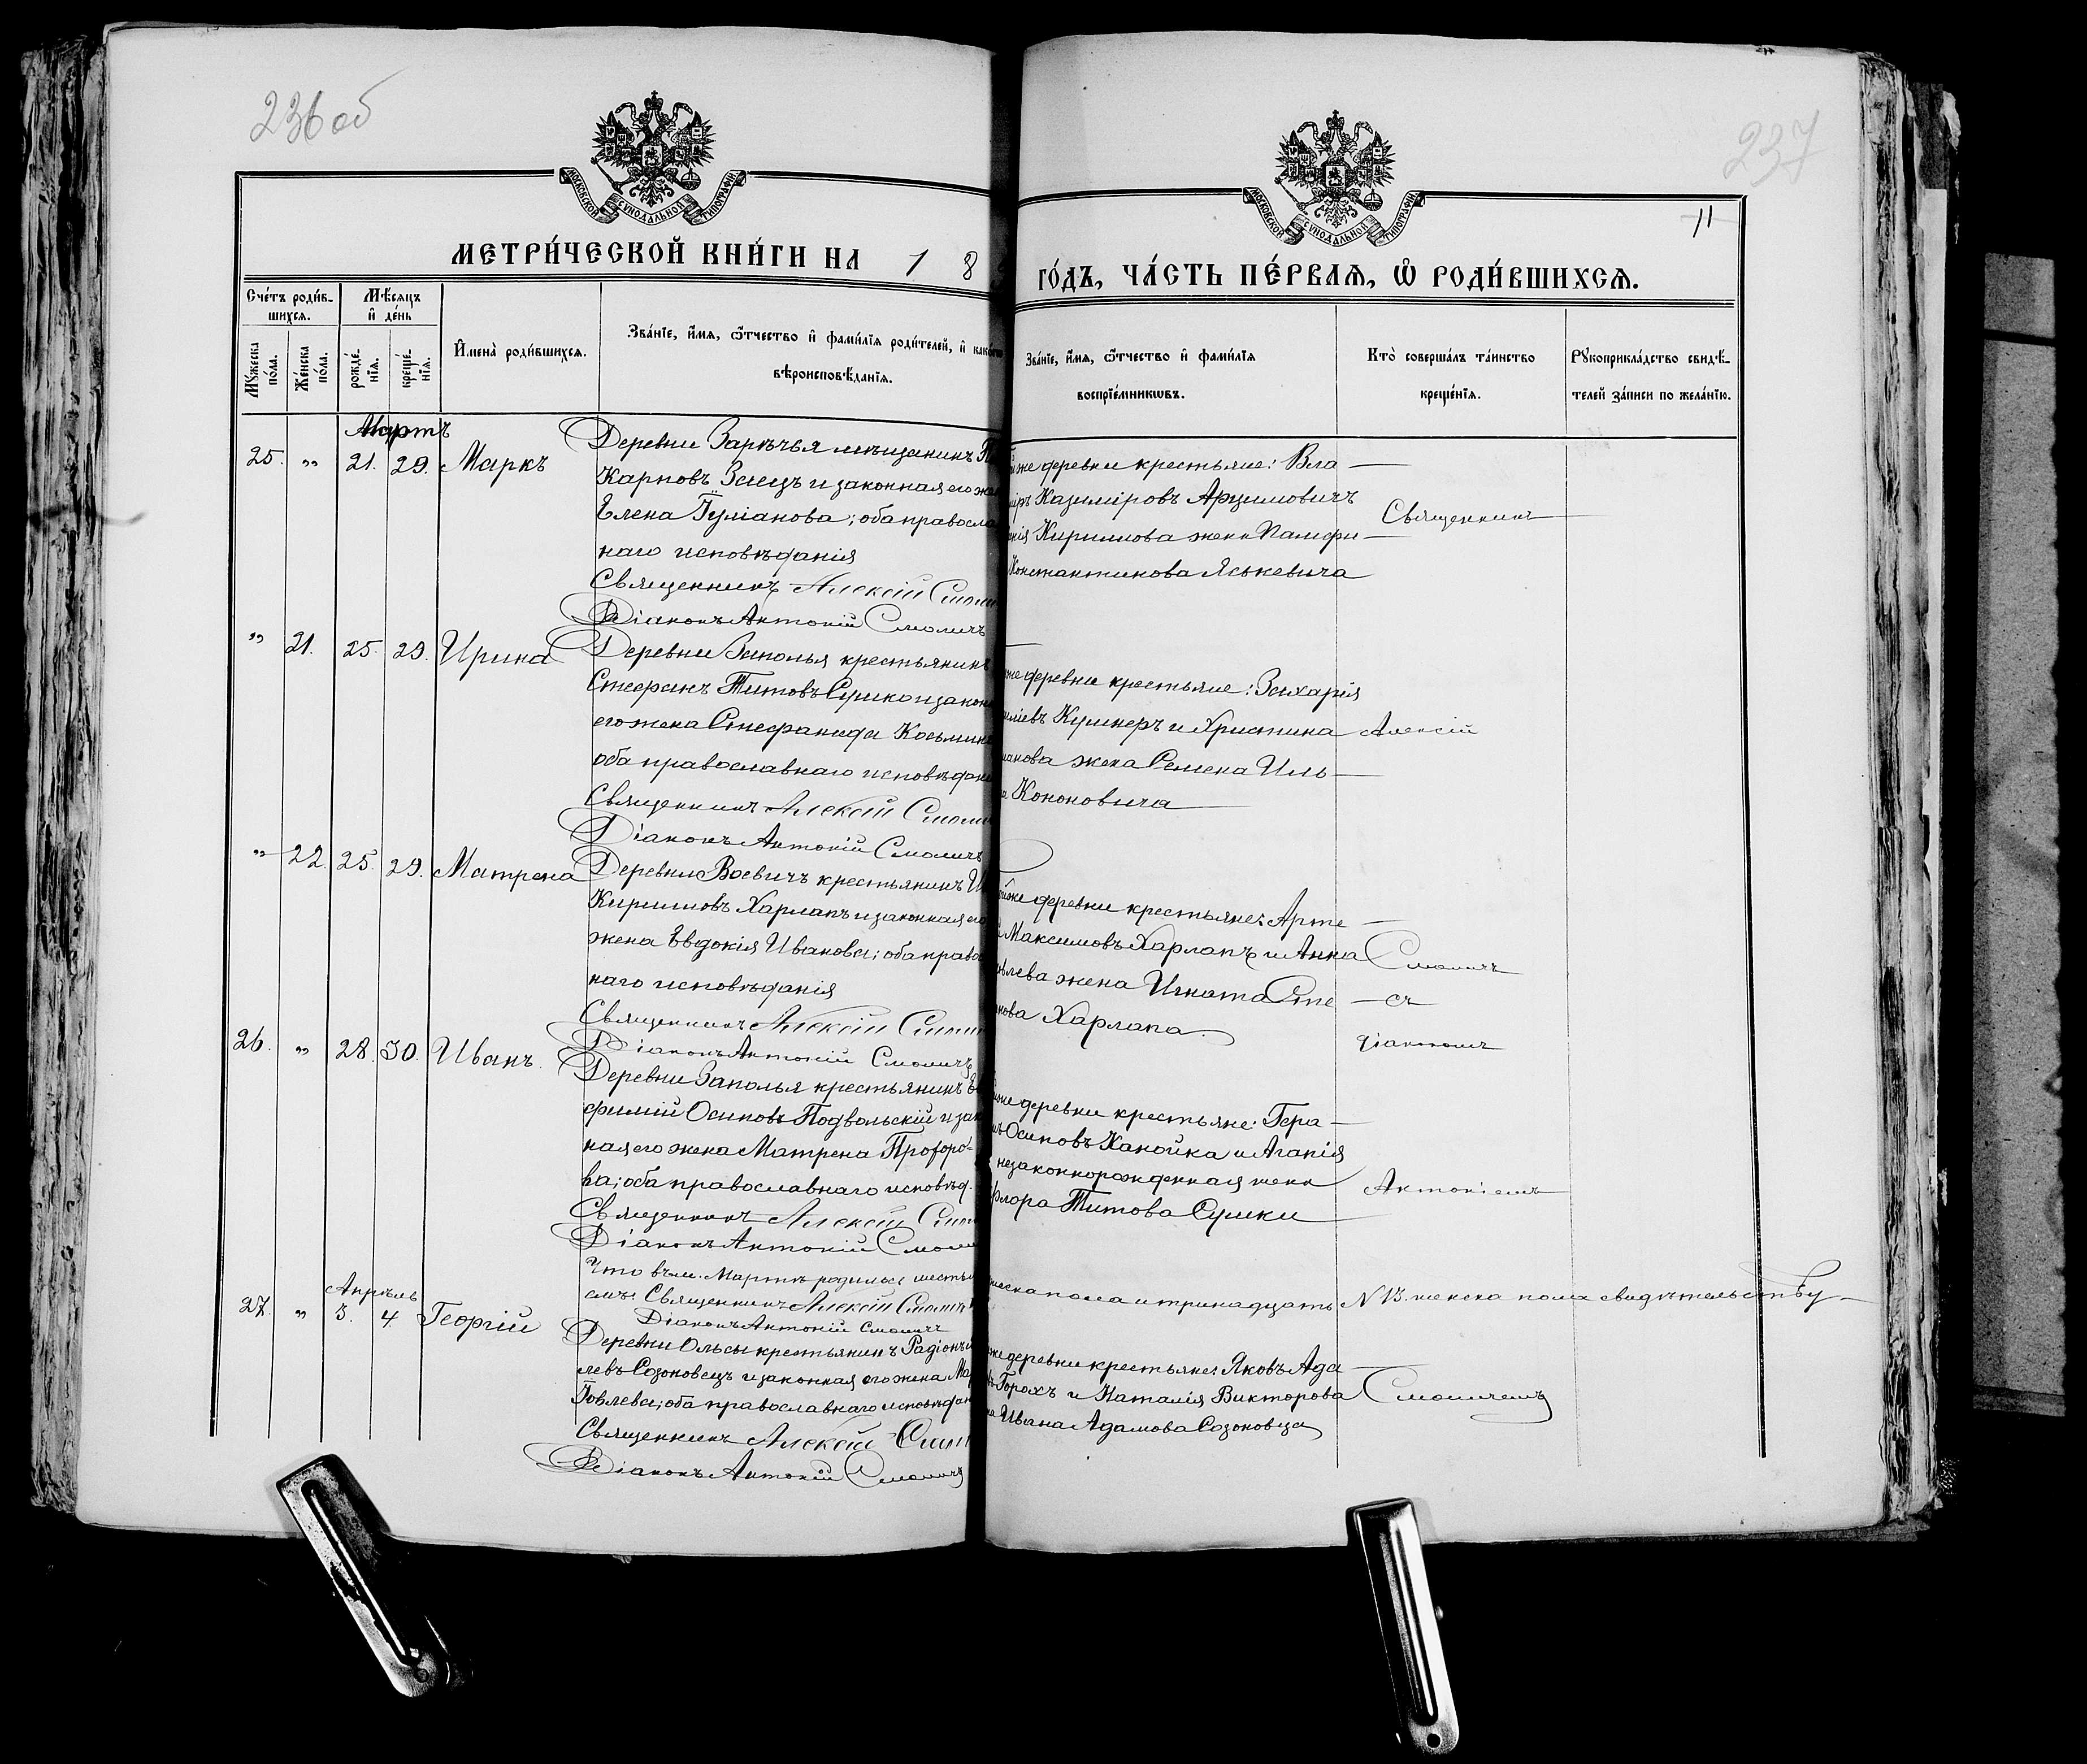 236 об
237
11
МОСКОВСКОЙ СѴНОДАЛЬНОЙ ТИПОГРАФІИ
МОСКОВСКОЙ СѴНОДАЛЬНОЙ ТИПОГРАФІИ
МЕТРИ́ЧЕСКОЙ КНИ́ГИ НА 1 8
ГО́ДЪ, ЧА́СТЬ ПЕ́РВАѦ, Ѽ РОДИ́ВШИХСѦ.
Сче́тъ роди́в-
шихсѧ.
Мꙋжеска по́ла.
Же́нска по́ла.
Мѣ́сѧцъ
и҆ де́нь
рожде́-
нїѧ.
креще́-
нїѧ.
И҆мена̀ роди́вшихсѧ.
Зва́нїе, и҆́мѧ, ѻ҆́тчество и҆ фами́лїѧ роди́телей, и҆
вѣроисповѣ́данїѧ.
Зва́нїе, и҆́мѧ, ѻ҆́тчество и҆ фами́лїѧ
воспрїе́мникѡвъ.
Кто̀ соверша́лъ та́инство
креще́нїѧ.
Рꙋкоприкла́дство свидѣ́-
телей за́писи по жела́нїю.
Мартъ
25. „ 21. 29. Маркъ
Деревни Зарѣчья мѣщанинъ
Карповъ Заецъ и законная его
Елена Іуліанова; оба
наго исповѣданія
Священникъ Алексій
Діаконъ Антоній Смоличъ
же деревни крестьяне: Вла—
Казиміровъ Арцимовичъ
Кириллова жена Памфи—
Константинова Яськевича
Священникъ
„ 21. 25. 29. Ирина
Деревни Заполья крестьянинъ
Стефанъ Титовъ Сушко и
его жена Стефанида
оба православнаго
Священникъ Алексій
Діаконъ Антоній Смоличъ
же деревни крестьяне: Захарія
Кушнеръ и Христина
жена Семена Иль—
Кононовича
Алексій
„ 22. 25. 29. Матрена
Деревни Воевичъ крестьянинъ
Кирилловъ Харлапъ и законная его
жена Евдокія Иванова; оба
наго исповѣданія
Священникъ Алексій
Діаконъ Антоній Смоличъ
же деревни крестьяне: Арте—
Максимовъ Харлапъ и Анна
жена Игната Сте—
Харлапа
Смоличъ
съ
діакономъ
26. „ 28. 30. Иванъ
Деревни Заполья крестьянинъ Ев
фимій Осиповъ Подвольскій и
ная его жена Матрена Прохоро-
ва; оба православнаго исповѣд.
Священникъ Алексій
Діаконъ Антоній
же деревни крестьяне: Гера—
Осиповъ Канойка и Агапія
незаконнорожденная жена
Флора Титова Сушки
Антоніемъ
Что въ м. Мартѣ родилось шесть
Священникъ Алексій
Діаконъ Антоній Смоличъ
пола и тринадцать № 13. женска пола свидѣтельству—
Апрѣль
27. „ 3. 4. Георгій
Деревни Ольсы крестьянинъ Радіонъ
левъ Созоновецъ и законная его жена
Іовлева; оба православнаго
Священникъ Алексій
Діаконъ Антоній Смоличъ
же деревни крестьяне: Яковъ Ада—
Горохъ и Наталія Викторова
Ивана Адамова Созоновца
Смоличемъ